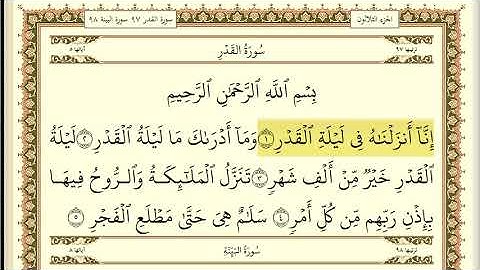 الجزء الثلاثون سورة القدر ٩٧ سورة البينة ٩٨
ترتيبها ٩٧ سُورَةُ القَدْرِ آياتها ٥
بِسْمِ ٱللَّهِ ٱلرَّحْمَٰنِ ٱلرَّحِيمِ
إِنَّآ أَنزَلْنَٰهُ فِى لَيْلَةِ ٱلْقَدْرِ ١ وَمَآ أَدْرَىٰكَ مَا لَيْلَةُ ٱلْقَدْرِ ٢ لَيْلَةُ
ٱلْقَدْرِ خَيْرٌ مِّنْ أَلْفِ شَهْرٍ ٣ تَنَزَّلُ ٱلْمَلَٰٓئِكَةُ وَٱلرُّوحُ فِيهَا
بِإِذْنِ رَبِّهِم مِّن كُلِّ أَمْرٍ ٤ سَلَٰمٌ هِىَ حَتَّىٰ مَطْلَعِ ٱلْفَجْرِ ٥
ترتيبها ٩٨ سُورَةُ البَيِّنَةِ آياتها ٨